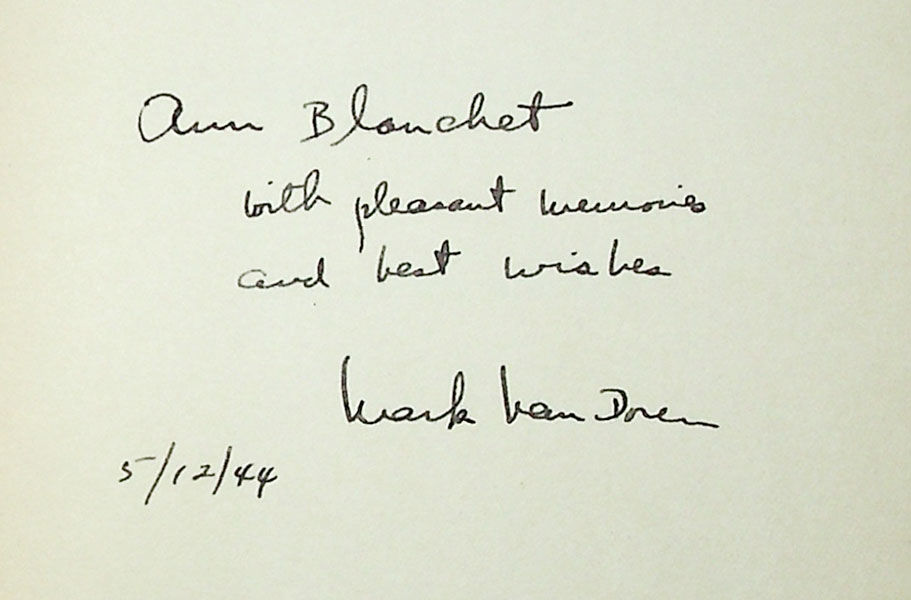 Ann Blanchet
with pleasant memories
and best wishes
Mark Van Doren
5/12/44